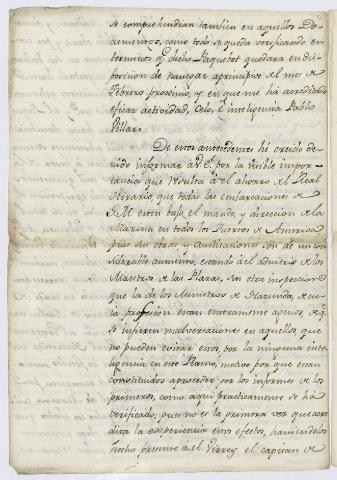 se comprehendian tambien en aquellos Do-
cumentos, como todo se queda verificando en
terminos qe. dicho Paquebot quedara en dis-
posicion de navegar aprincipios del mes de
Febrero proximo, y en que me há acreditado
eficaz actividad, Celo, è inteligencia Pablo
Pillar.
De estos antecedentes hé creido de-
vido informar à V.E. por la visible impor-
tancia que resulta à el ahorro del Real
Herario, que todas las embarcaciones de
S.M. esten bajo el mando, y direccion de la
Marina en todos los Puertos de America
pues sus obras, y auxiliaciones son de incon-
siderable aumento, estando à el advitrio de los
Maestros de las Plazas, sin otra inspeccion
que la de los Ministros de Hazienda, de cu-
ia profesion estan enteramente agenos, de q.
se infieren malversaciones en aquellos, que
no pueden evitar estos, por la ninguna inte-
ligencia en este Ramo, motivo por que estan
constituidos aproceder por los informes de los
primeros, como aqui practicamente se há
verificado, pues no es la primera vez que acre-
dita la experiencia estos efectos, haviendolos
hecho presente à el Virrey el capitan de